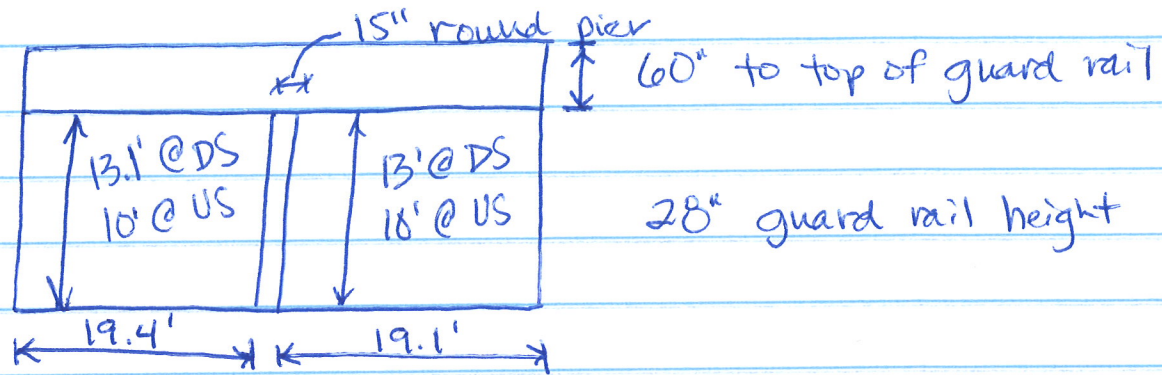 15" round pier
60" to top of guard rail
13.1' @ DS
10' @ US
13' @ DS
10' @ US
28" guard rail height
19.4'
19.1'